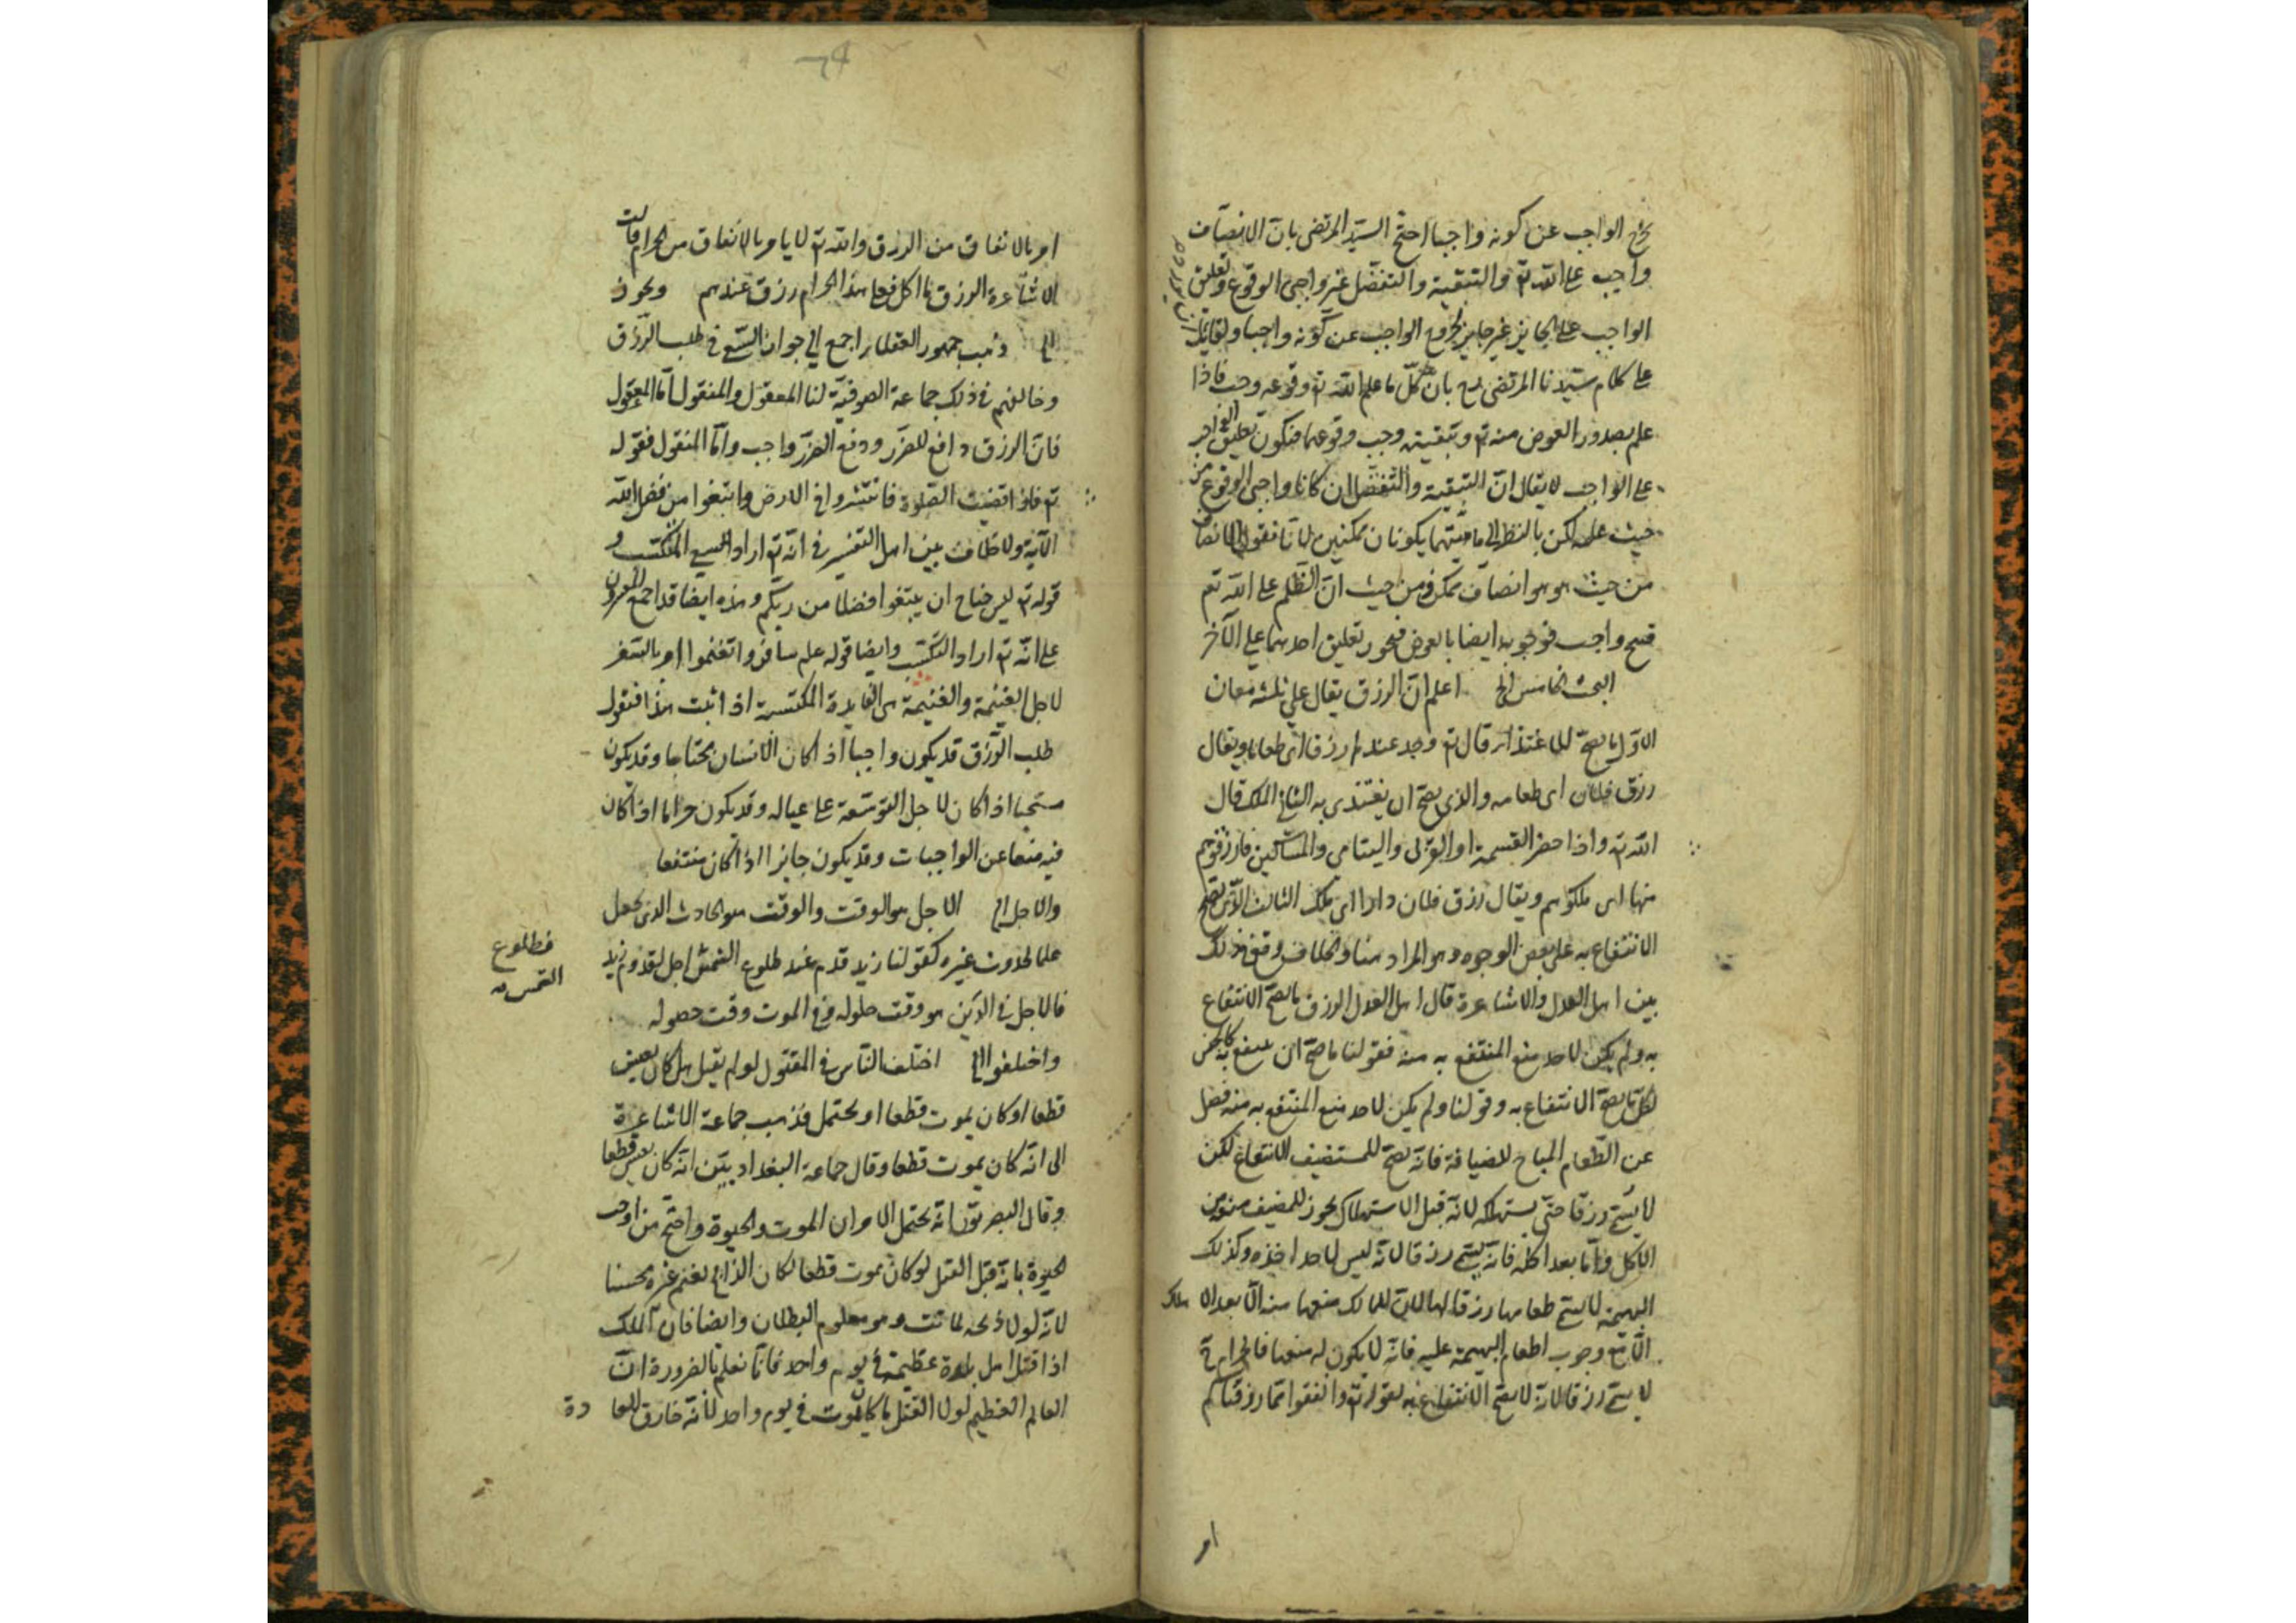 يخرج الواجب عن كونه واجبا احتج السيد المرتضى بان الانصاف
واجب على الله تع والتبقية والتفضل غير واجبى الوقوع وتعليق
الواجب على الجايز غير جايز لخروج الواجب عن كونه واجبا ولقايل
على كلام سيدنا المرتضى بان كل ما علم الله تع وقوعه وجب فاذا
علم بصدور العوض منه تع وتبقيته وجب وقوعهما فيكون تعليق الواجب
على الواجب لا يقال ان التبقية والتفضل ان كانا واجبى الوقوع من
حيث علمه لكن بالنظر الى ماهيتهما يكونان ممكنين لانا نقول الانصاف
من حيث هو هو انصاف ممكن ومن حيث ان الظلم على الله تع
قبيح واجب فوجوبه ايضا بالعرض فيجوز تعليق احدهما على الآخر
البحث الخامس الخ اعلم ان الرزق يقال على ثلثة معان
الاول ما يصح للاغتذا قال تع وجد عندها رزقا اى طعاما ويقال
رزق فلان اى طعامه والذى يصح ان يغتذى به الثانى الملك قال
الله تع واذا حضر القسمة اولو القربى واليتامى والمساكين فارزقوهم
منها اى ملكوهم ويقال رزق فلان دارا اى ملك الثالث الذى يصح
الانتفاع به على بعض الوجوه وهو المراد هنا والخلاف وقع فى ذلك
بين اهل العدل والاشاعرة قال اهل العدل الرزق ما صح الانتفاع
به ولم يكن لاحد منع المنتفع به منه فقولنا ما صح ان ينتفع به كالجنس
لكل ما يصح الانتفاع به وقولنا ولم يكن لاحد منع المنتفع به منه فصل
عن الطعام المباح للضيافة فانه يصح للمستضيف الانتفاع لكن
لا يسمى رزقا حتى يستهلكه لانه قبل الاستهلاك يجوز للمضيف منعه من
الاكل واما بعد اكله فانه يسمى رزقا لانه ليس لاحد اخذه وكذلك
البهيمة لا يسمى طعامها رزقا لها لان للمالك منعها منه الا بعد الاهلاك
الا مع وجوب اطعام البهيمة عليه فانه لا يكون له منعها فالحرام ح
لا يسمى رزقا لانه لا يصح الانتفاع به لقوله تع وانفقوا مما رزقناكم
امر
امر بالانفاق من الرزق والله تع لا يامر بالانفاق من الحرام قالت
الاشاعرة الرزق ما اكل فعلى هذا الحرام رزق عندهم ويجوز
الخ ذهب جمهور العقلا راجع الى جواز السعى فى طلب الرزق
وخالفهم فى ذلك جماعة الصوفية لنا المعقول والمنقول اما المعقول
فان الرزق دافع للضرر ودفع الضرر واجب واما المنقول فقوله
تع فاذا قضيت الصلوة فانتشروا فى الارض وابتغوا من فضل الله
الآية ولا خلاف بين اهل التفسير فى انه تع اراد السعى المكتسب و
قوله تع ليس جناح ان يبتغوا فضلا من ربكم وهذه ايضا قد اجمع المفسرون
على انه تع اراد التكسب وايضا قوله علم سافروا تغنموا امر بالسفر
لاجل الغنيمة والغنيمة هى الفايدة المكتسبة اذا ثبت هذا فنقول
طلب الرزق قد يكون واجبا اذا كان الانسان محتاجا وقد يكون
مستحبا اذا كان لاجل التوسعة على عياله وقد يكون حراما اذا كان
فيه منعا عن الواجبات وقد يكون جايزا اذا كان منتفعا
والاجل الخ الاجل هو الوقت والوقت هو الحادث الذى يجعل
علما لحدوث غيره كقولنا زيد قدم عند طلوع الشمس اجل لقدوم زيد
فطلوع
الشمس صه
فالاجل فى الدين هو وقت حلوله وفى الموت وقت حصوله
واختلفوا الخ اختلف الناس فى المقتول لو لم يقتل هل كان يعيش
قطعا او كان يموت قطعا او يحتمل فذهب جماعة الاشاعرة
الى انه كان يموت قطعا وقال جماعة البغداديين انه كان يعيش قطعا
وقال البصريون انه يحتمل الامران الموت والحيوة واحتج من اوجب
الحيوة بانه قبل القتل لو كان يموت قطعا لكان الذابح لغنم غيره محسنا
لانه لولا ذبحه لماتت وهو معلوم البطلان وايضا فان الملك
اذا قتل اهل بلدة عظيمة فى يوم واحد فانا نعلم بالضرورة ان
العالم العظيم لولا القتل ما كان يموت فى يوم واحد لانه خارق للعادة